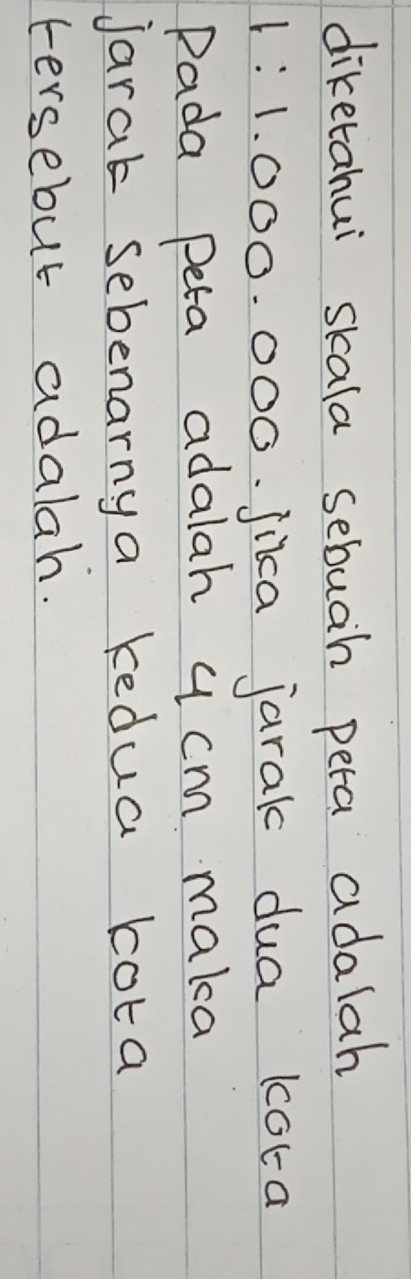 diketahui skala sebuah peta adalah
1 : 1.000.000. jika jarak dua kota
Pada peta adalah 4 cm maka
jarak sebenarnya kedua kota
tersebut adalah.